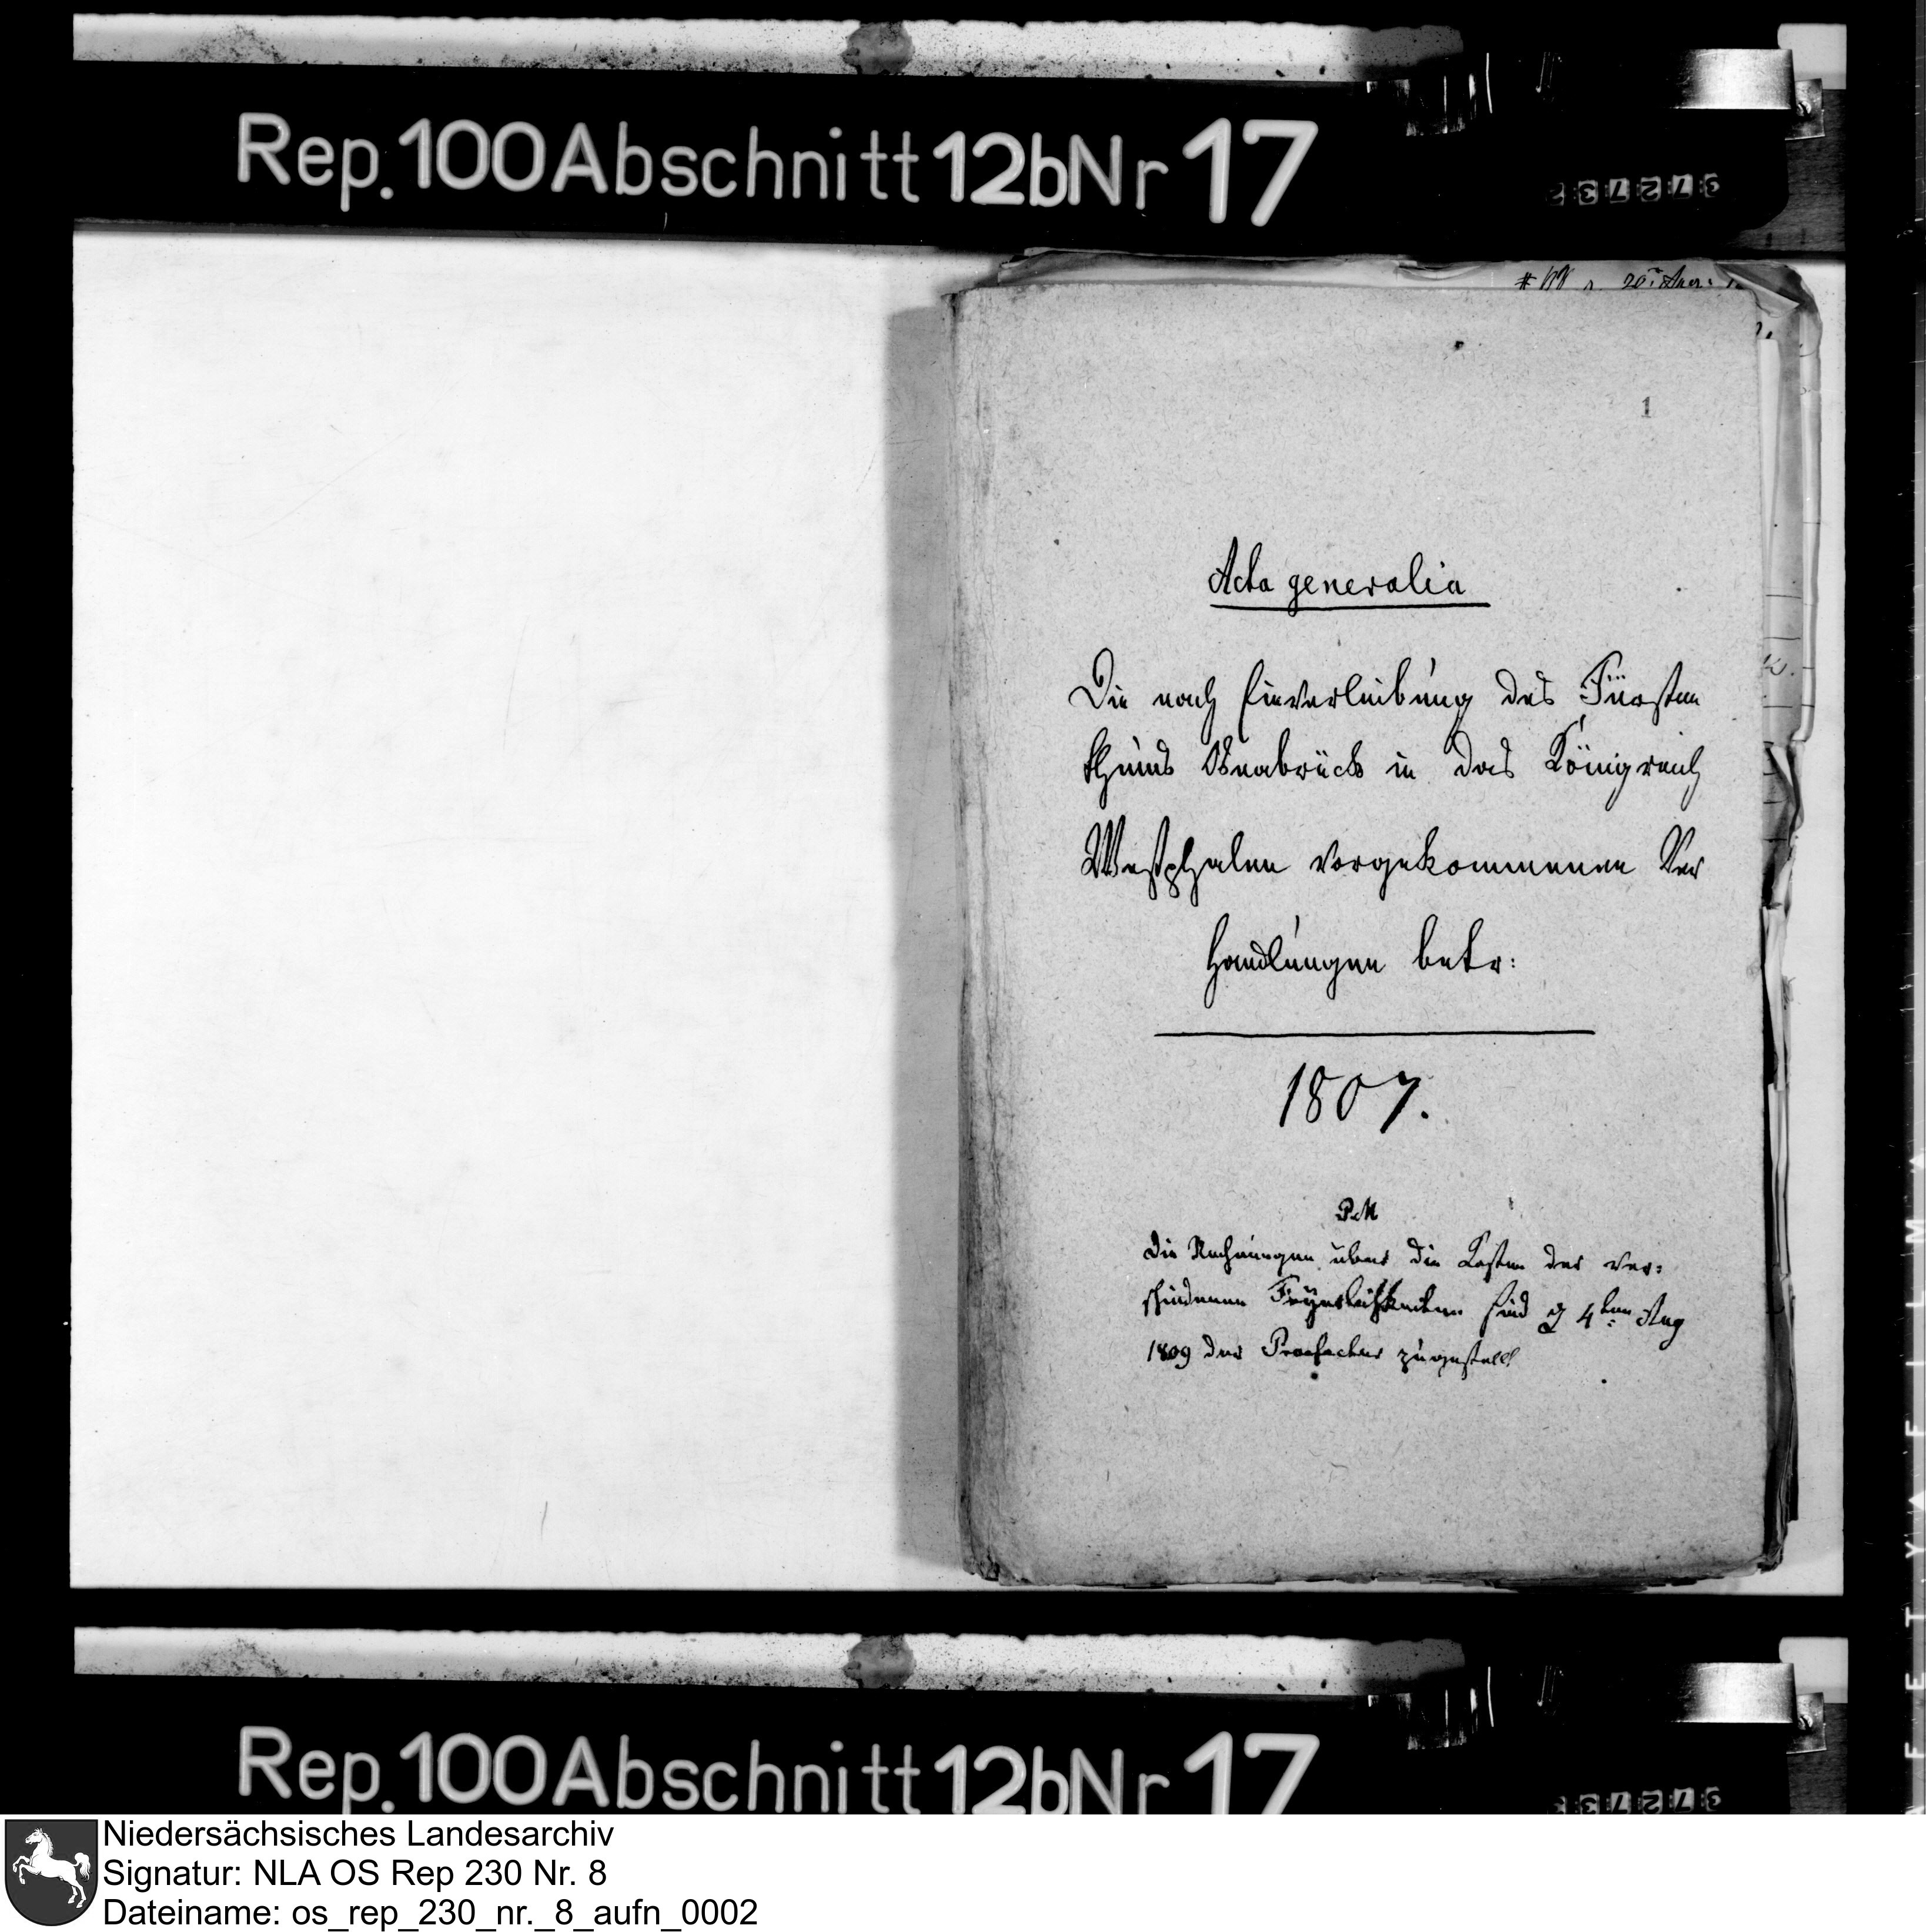 Rep. 100 Abschnitt 12b Nr 17
1
Acta generalia
Die nach Einverleibung des Fürsten
thums Osnabrück in das Königreich
Westphalen vorgekommenen Ver
handlungen betr:
1807.
P.M
Die Rechnungen über die Kosten der ver:
schiedenen Feyerlichkeiten sind d 4ten Aug
1809 der Praefectur zugestellt
Rep. 100 Abschnitt 12b Nr 17
Niedersächsisches Landesarchiv
Signatur: NLA OS Rep 230 Nr. 8
Dateiname: os_rep_230_nr._8_aufn_0002